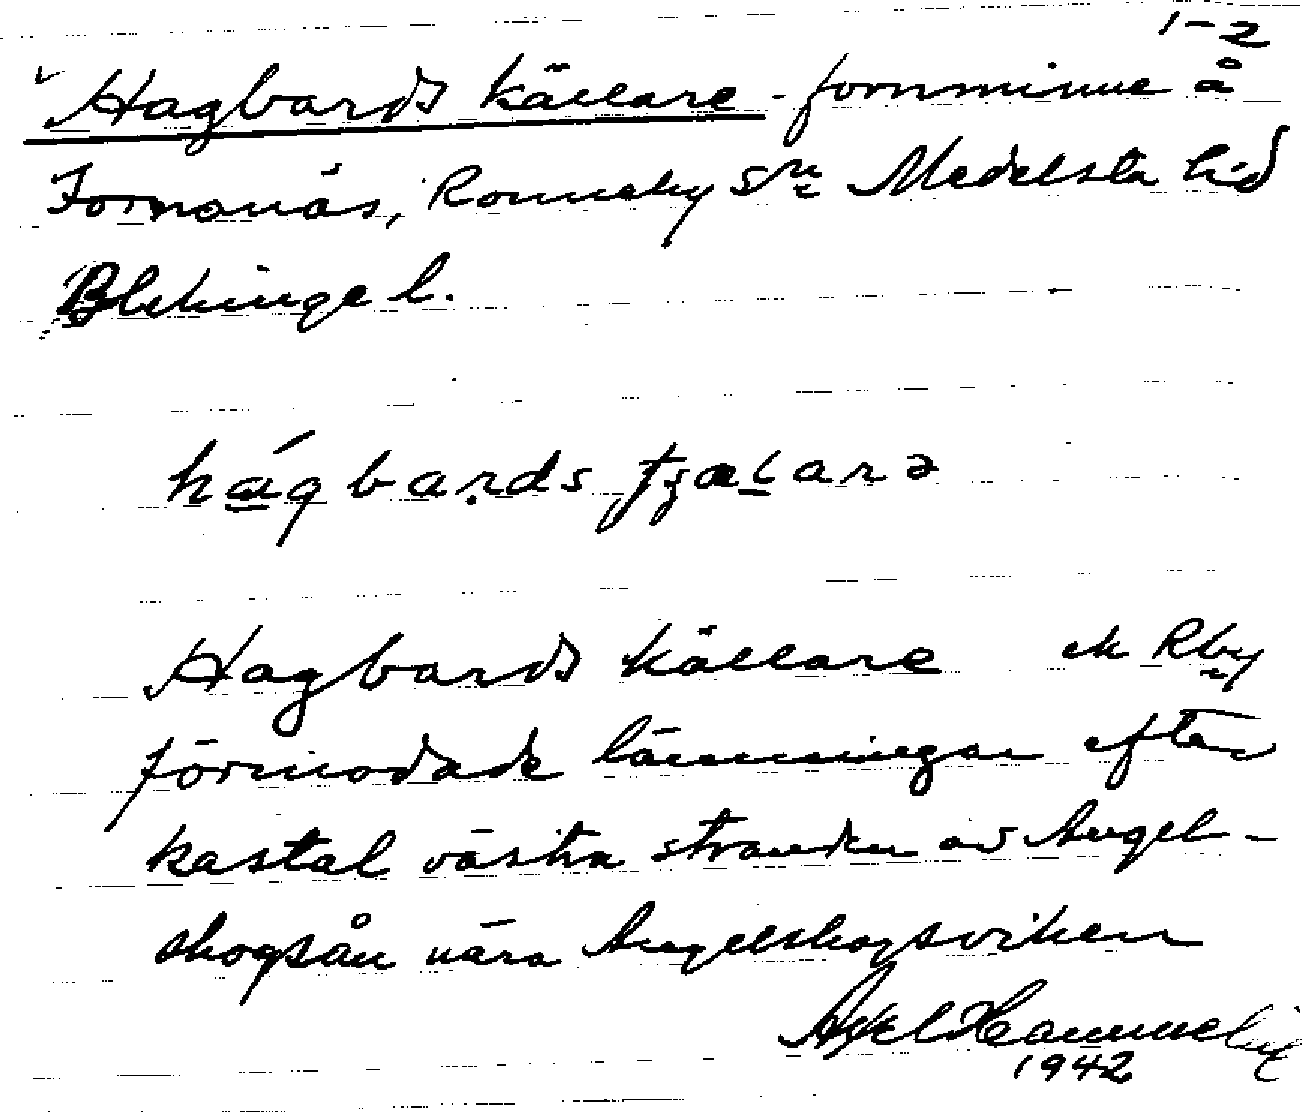 1-2
Hagbards källare - fornminne å
Fornanäs, Ronneby sn Medelsta hd
Blekinge l.
hágbards tʃælarə
Hagbards källare ek Rby
förmodade lämningar efter
kastal västra stranden av Angel-
skogsån nära Angelskogsviken
Axel
1942